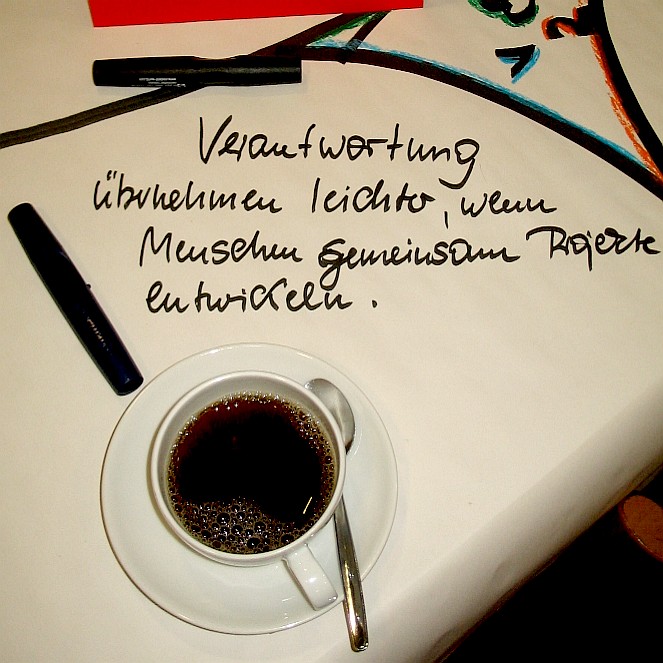 Verantwortung
übernehmen leichter, wenn
Menschen gemeinsam Projekte
entwickeln.